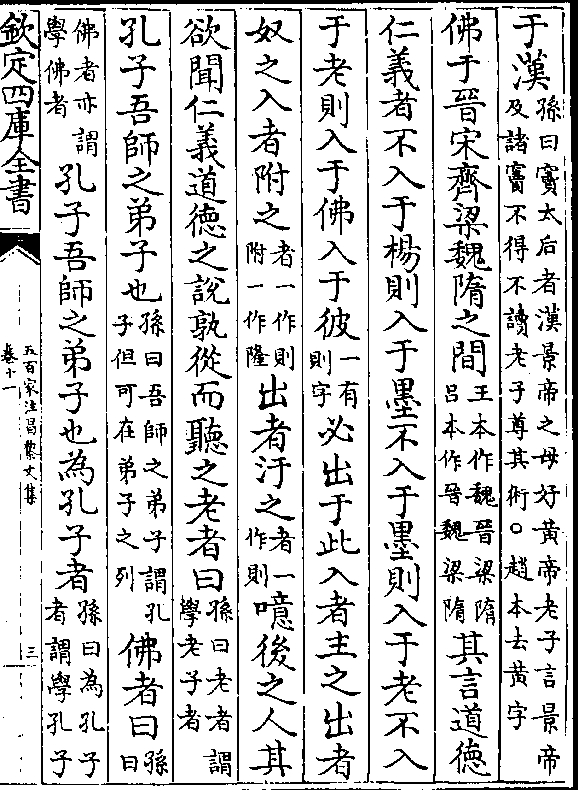 于漢孫曰竇太后者漢景帝之母好黃帝老子言景帝及諸竇不得不讀老子尊其術○趙本去黃字
佛于晉宋齊梁魏隋之間王本作魏晉梁隋吕本作晉魏梁隋其言道德
仁義者不入于楊則入于墨不入于墨則入于老不入
于老則入于佛入于彼一有則字必出于此入者主之出者
奴之入者附之者一作則附一作隆出者汙之者一作則噫後之人其
欲聞仁義道德之說孰從而聽之老者曰孫曰老者謂學老子者
孔子吾師之弟子也孫曰吾師之弟子謂孔子但可在弟子之列佛者曰孫曰
佛者亦謂學佛者孔子吾師之弟子也為孔子者孫曰為孔子者謂學孔子
欽定四庫全書
五百家注昌黎文集
卷十一
三